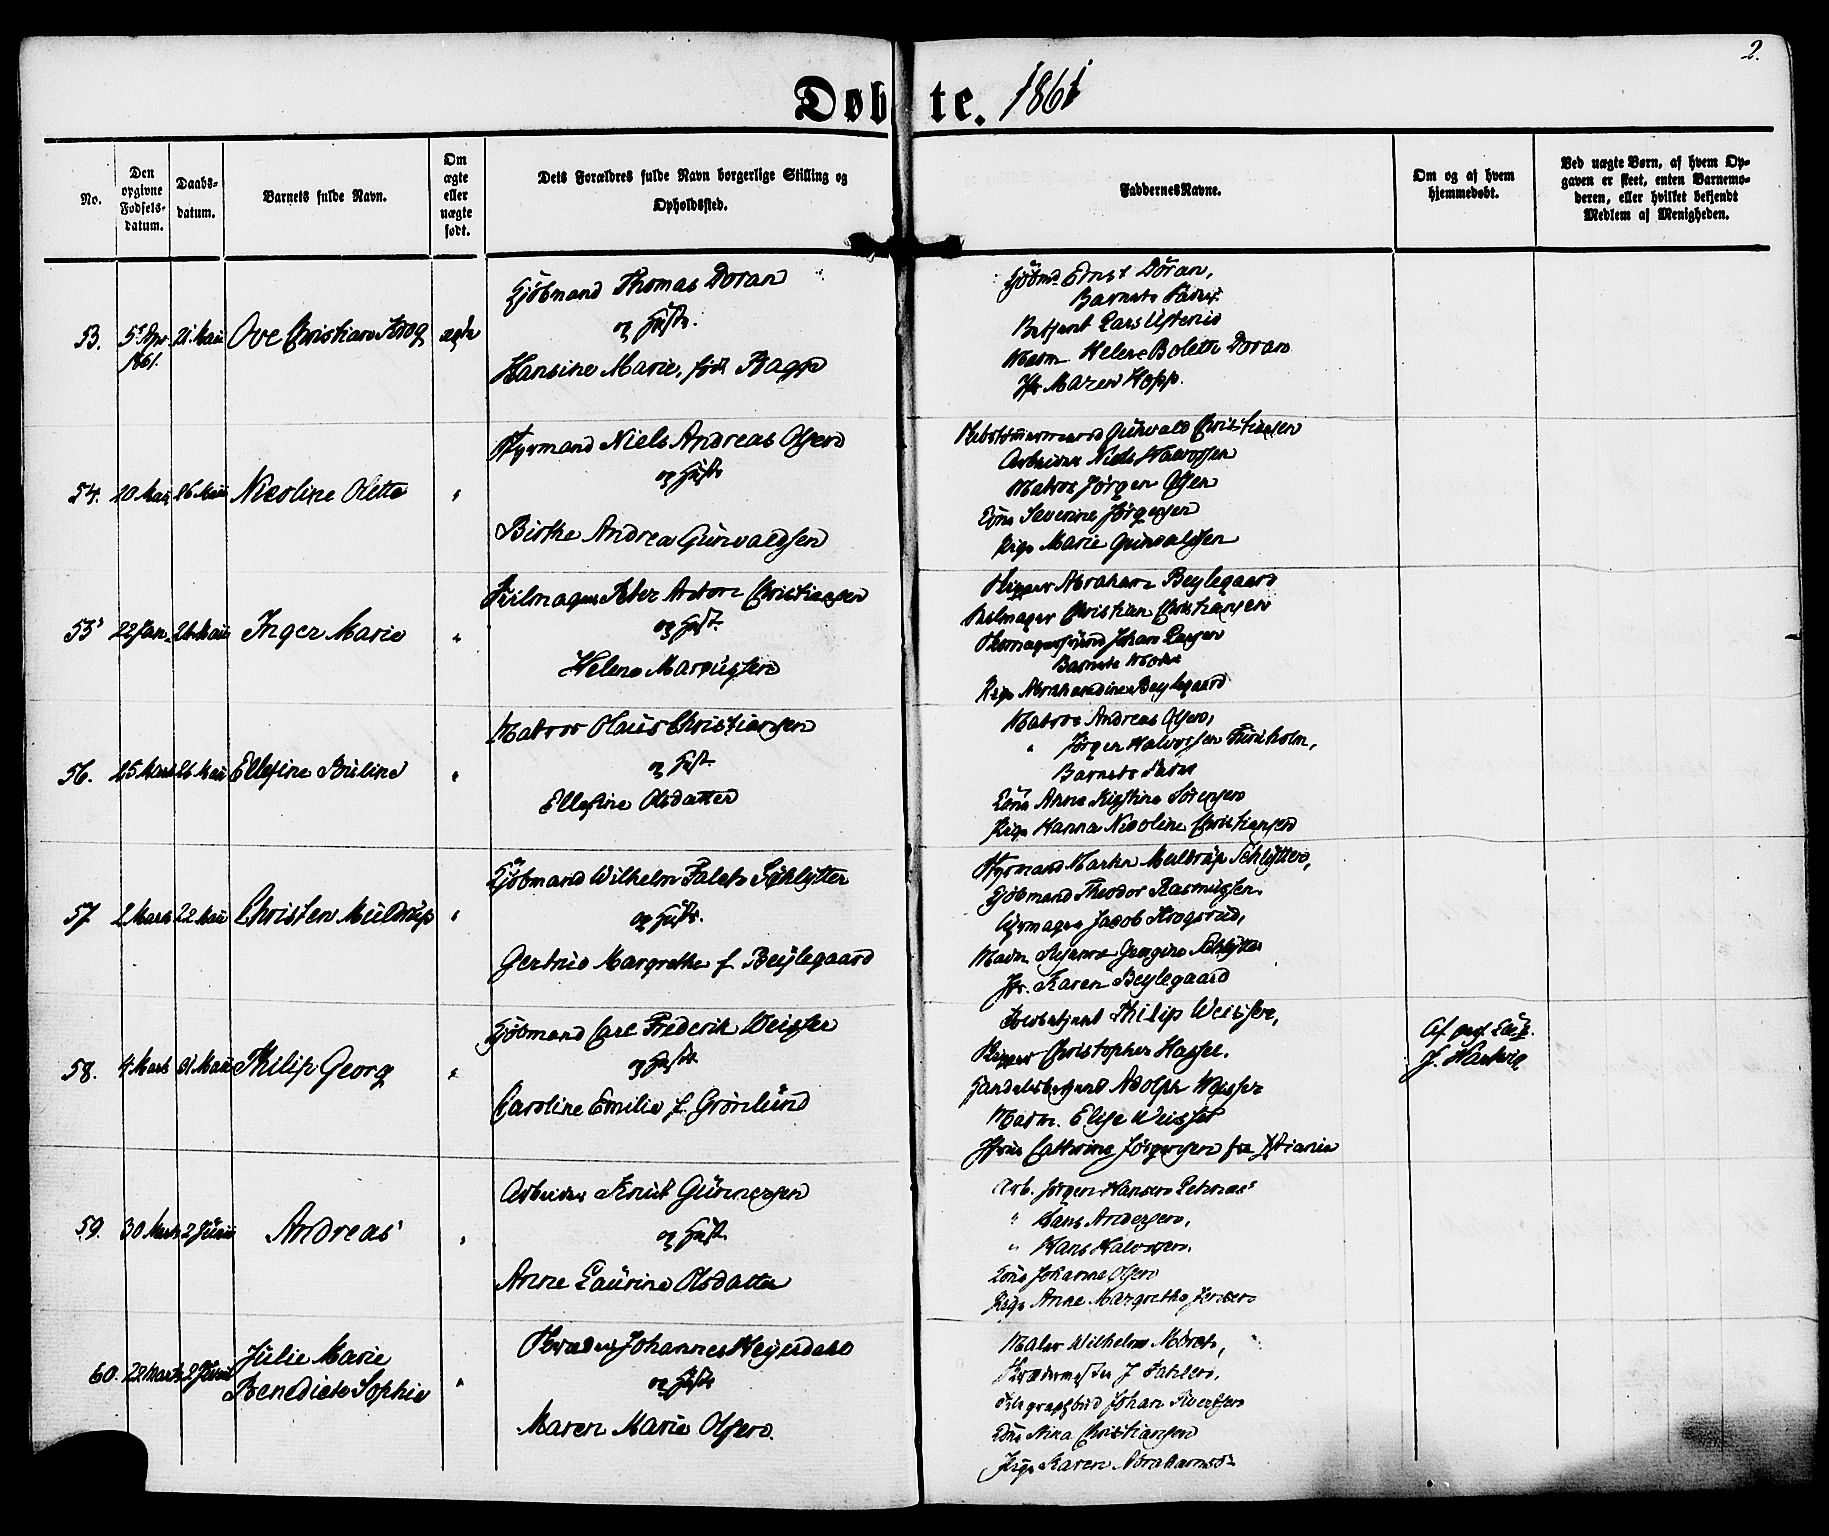 2.
Døbte. 1861
No.
Den opgivne Fødsels-datum.
Daabs-datum.
Barnets fulde Navn.
Om ægte eller uægte født.
Dets Forældres fulde Navn borgerlige Stilling og Opholdssted.
Faddernes Navne.
Om og af hvem hjemmedøbt.
Ved uægte Børn, af hvem Op-gaven er skeet, enten Barnemo-deren, eller hvilket bekjendt Medlem af Menigheden.
53. 5t Apr 1861. 21 Mai Ove Christian Krog ægte
Kjøbmand Thomas Doran
og Hust.
Hansine Marie, født Bagge
Kjøbmd Ernst Doran,
Barnets Fader.
Betjent Lars Ustenid
Madm Helene Bolette Doran
Jfr Maren Hopp.
54. 20 Mai 26 Mai Nicoline Olette "
Styrmand Niels Andreas Olsen
og Hust
Birthe Andrea Gunvaldsen
Gunvald Christiansen
Arbeider Niels Halvorsen
Matros Jørgen Olsen
Kone Severine Jørgensen
Pige Marie Gunvaldsen
55 22 Jan. 26 Mai Inger Marie "
Seilmager Peter Anton Christiansen
og Hust.
Helene Marcussen
Skipper Abraham Beylegaard
Seilmager Christian Christiansen
Skomagersvend Johan Larsen
Barnets Moder
Pige Abrahamdine Beylegaard
56. 25 Marts 26 Mai Ellefine Pauline "
Matros Olaus Christiansen
og Hust.
Ellefine Olsdatter
Matros Andreas Olsen,
" Jørgen Halvorsen Furuholm,
Barnets Fader
Kone Anne Kirstine Sørensen
Pige Hanna Nicoline Christiansen
57 2 Marts 22 Mai Christen Muldrup "
Kjøbmand Wilhelm Falck Schlytter
og Hust.
Gertrud Margrethe f. Beylegaard
Styrmand Martin Muldrup Schlytter,
Kjøbmand Theodor Rasmussen.
Uhrmager Jacob Krogsrud,
Madm Susanne Georgine Schlytter
Jfr. Karen Beylegaard
58. 4 Marts 31 Mai Philip Georg "
Kjøbmand Carl Frederik Weisser
og Hust.
Caroline Emilie f. Grønlund
Toldbetjent Philip Weisser,
Skipper Christopher Hassel.
Handelsbetjent Adolph Weisser
Madm. Elise Weisser
Jfrue Cathrine Jørgensen fra Xstiania
Af
J. Hartvig
59. 30 Marts 2 Juni Andreas "
Arbeider Knut Gunnersen
og Hust.
Anne Laurine Olsdatter
Arb. Jørgen Hansen
" Hans Andersen,
" Hans Halvorsen.
Kone Johanne Olsen
Pige Anne Margrethe Jensen
60. 22 Marts 2 Juni Julie Marie Benedicte Sophie "
Skræder Johannes Heyerdahl
og Hust
Maren Marie Olsen.
Maler Wilhelm
Skrædermester J. Dahlen.
Telegraphbud Johan Sivertsen
Kone Nina Christiansen
Pige Karen Abrahams.